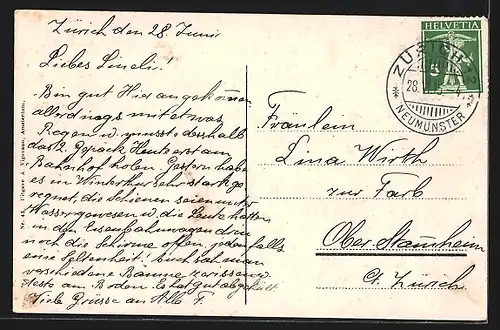 Zürich den 28. Juni
Liebes Lineli!
Bin gut Hier angekommen
allerdings mit etwas
Regen u. musste deshalb
das 2. Gepäck Heute erst am
Bahnhof holen. Gestern habe
es in Winterthur sehr stark ge
regnet, die Schienen seien unter
Wasser gewesen u. die Leute hatten
in den Eisenbahnwagen drin
noch die Schirme offen, jedenfalls
eine Seltenheit! Auch sah man
verschiedene Bäume zerissene
Äste am Boden. Es hat gut abgekühlt
Viele Grüsse an Alle F.
Nr. 43. Uitgave A. Vigeveno, Amsterdam.
HELVETIA
5
ZÜRICH
28.
NEUMÜNSTER
Fräulein
Lina Wirth
zur Farb
Ober Stamheim
Ct. Zürich